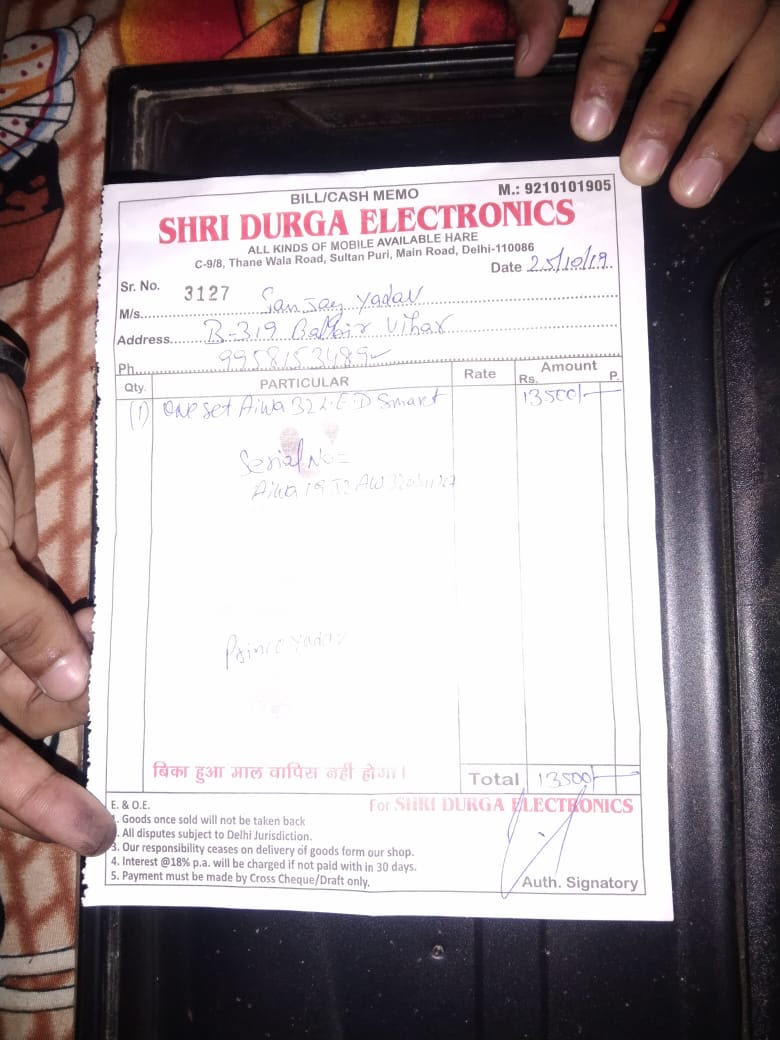 BILL/CASH MEMO M.: 9210101905
SHRI DURGA ELECTRONICS
ALL KINDS OF MOBILE AVAILABLE HARE
C-9/8, Thane Wala Road, Sultan Puri, Main Road, Delhi-110086
Date 25/10/19
Sr. No. 3127
M/s. Sanjay Yadav
Address R-319 Balbir Vihar
Ph. 9958153489
Qty. PARTICULAR Rate Amount
Rs. P.
(1) One set Aiwa 32 L.E.D Smart 13500/-
Serial No:-
Prince Yadav
बिका हुआ माल वापिस नहीं होगा।
Total 13500/-
E. & O.E. For SHRI DURGA ELECTRONICS
1. Goods once sold will not be taken back
. All disputes subject to Delhi Jurisdiction.
3. Our responsibility ceases on delivery of goods form our shop.
4. Interest @18% p.a. will be charged if not paid with in 30 days.
5. Payment must be made by Cross Cheque/Draft only.
Auth. Signatory